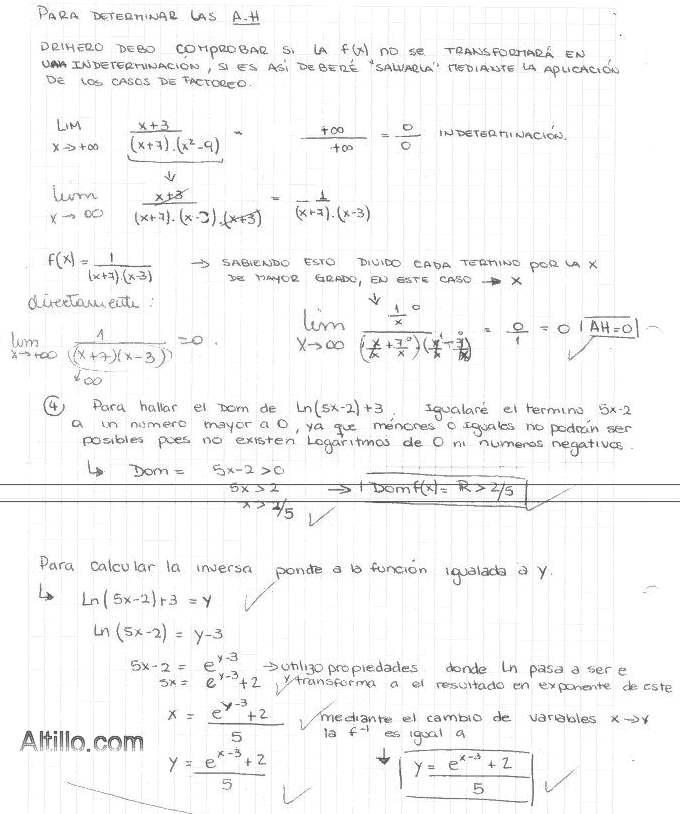 PARA DETERMINAR LAS A.H
PRIMERO DEBO COMPROBAR SI LA f(x) NO SE TRANSFORMARÁ EN
UNA INDETERMINACIÓN, SI ES ASÍ DEBERÉ "SALVARLA" MEDIANTE LA APLICACIÓN
DE LOS CASOS DE FACTOREO.
LIM x→+∞ x+3 / (x+7).(x²-9) = +∞ / +∞ = 0/0 INDETERMINACIÓN.
lim x→∞ x+3 / (x+7).(x-3).(x+3) = 1 / (x+7).(x-3)
f(x) = 1 / (x+7).(x-3) → SABIENDO ESTO DIVIDO CADA TERMINO POR LA X
DE MAYOR GRADO, EN ESTE CASO → X
directamente:
lim x→+∞ 1 / ((x+7)(x-3)) = 0.
↓ ∞
lim x→∞ 1/x 0 / (x/x + 7/x 0).(x/x 1 - 3/x 0) = 0/1 = 0 | AH=0 |
④ Para hallar el Dom de Ln(5x-2)+3, Igualaré el termino 5x-2
a un número mayor a 0, ya que menores o iguales no podrán ser
posibles pues no existen Logaritmos de 0 ni numeros negativos.
↳ Dom = 5x-2 > 0
5x > 2 → Dom f(x) = R > 2/5
x > 2/5
Para calcular la inversa ponde a la función igualada a y.
↳ Ln(5x-2)+3 = y
Ln(5x-2) = y-3
5x-2 = e^y-3 → utilizo propiedades donde Ln pasa a ser e
5x = e^y-3 + 2 y transforma a el resultado en exponente de este
x = e^y-3 + 2 / 5 mediante el cambio de variables x→y
la f⁻¹ es igual a
Altillo.com
y = e^x-3 + 2 / 5
y = e^x-3 + 2 / 5